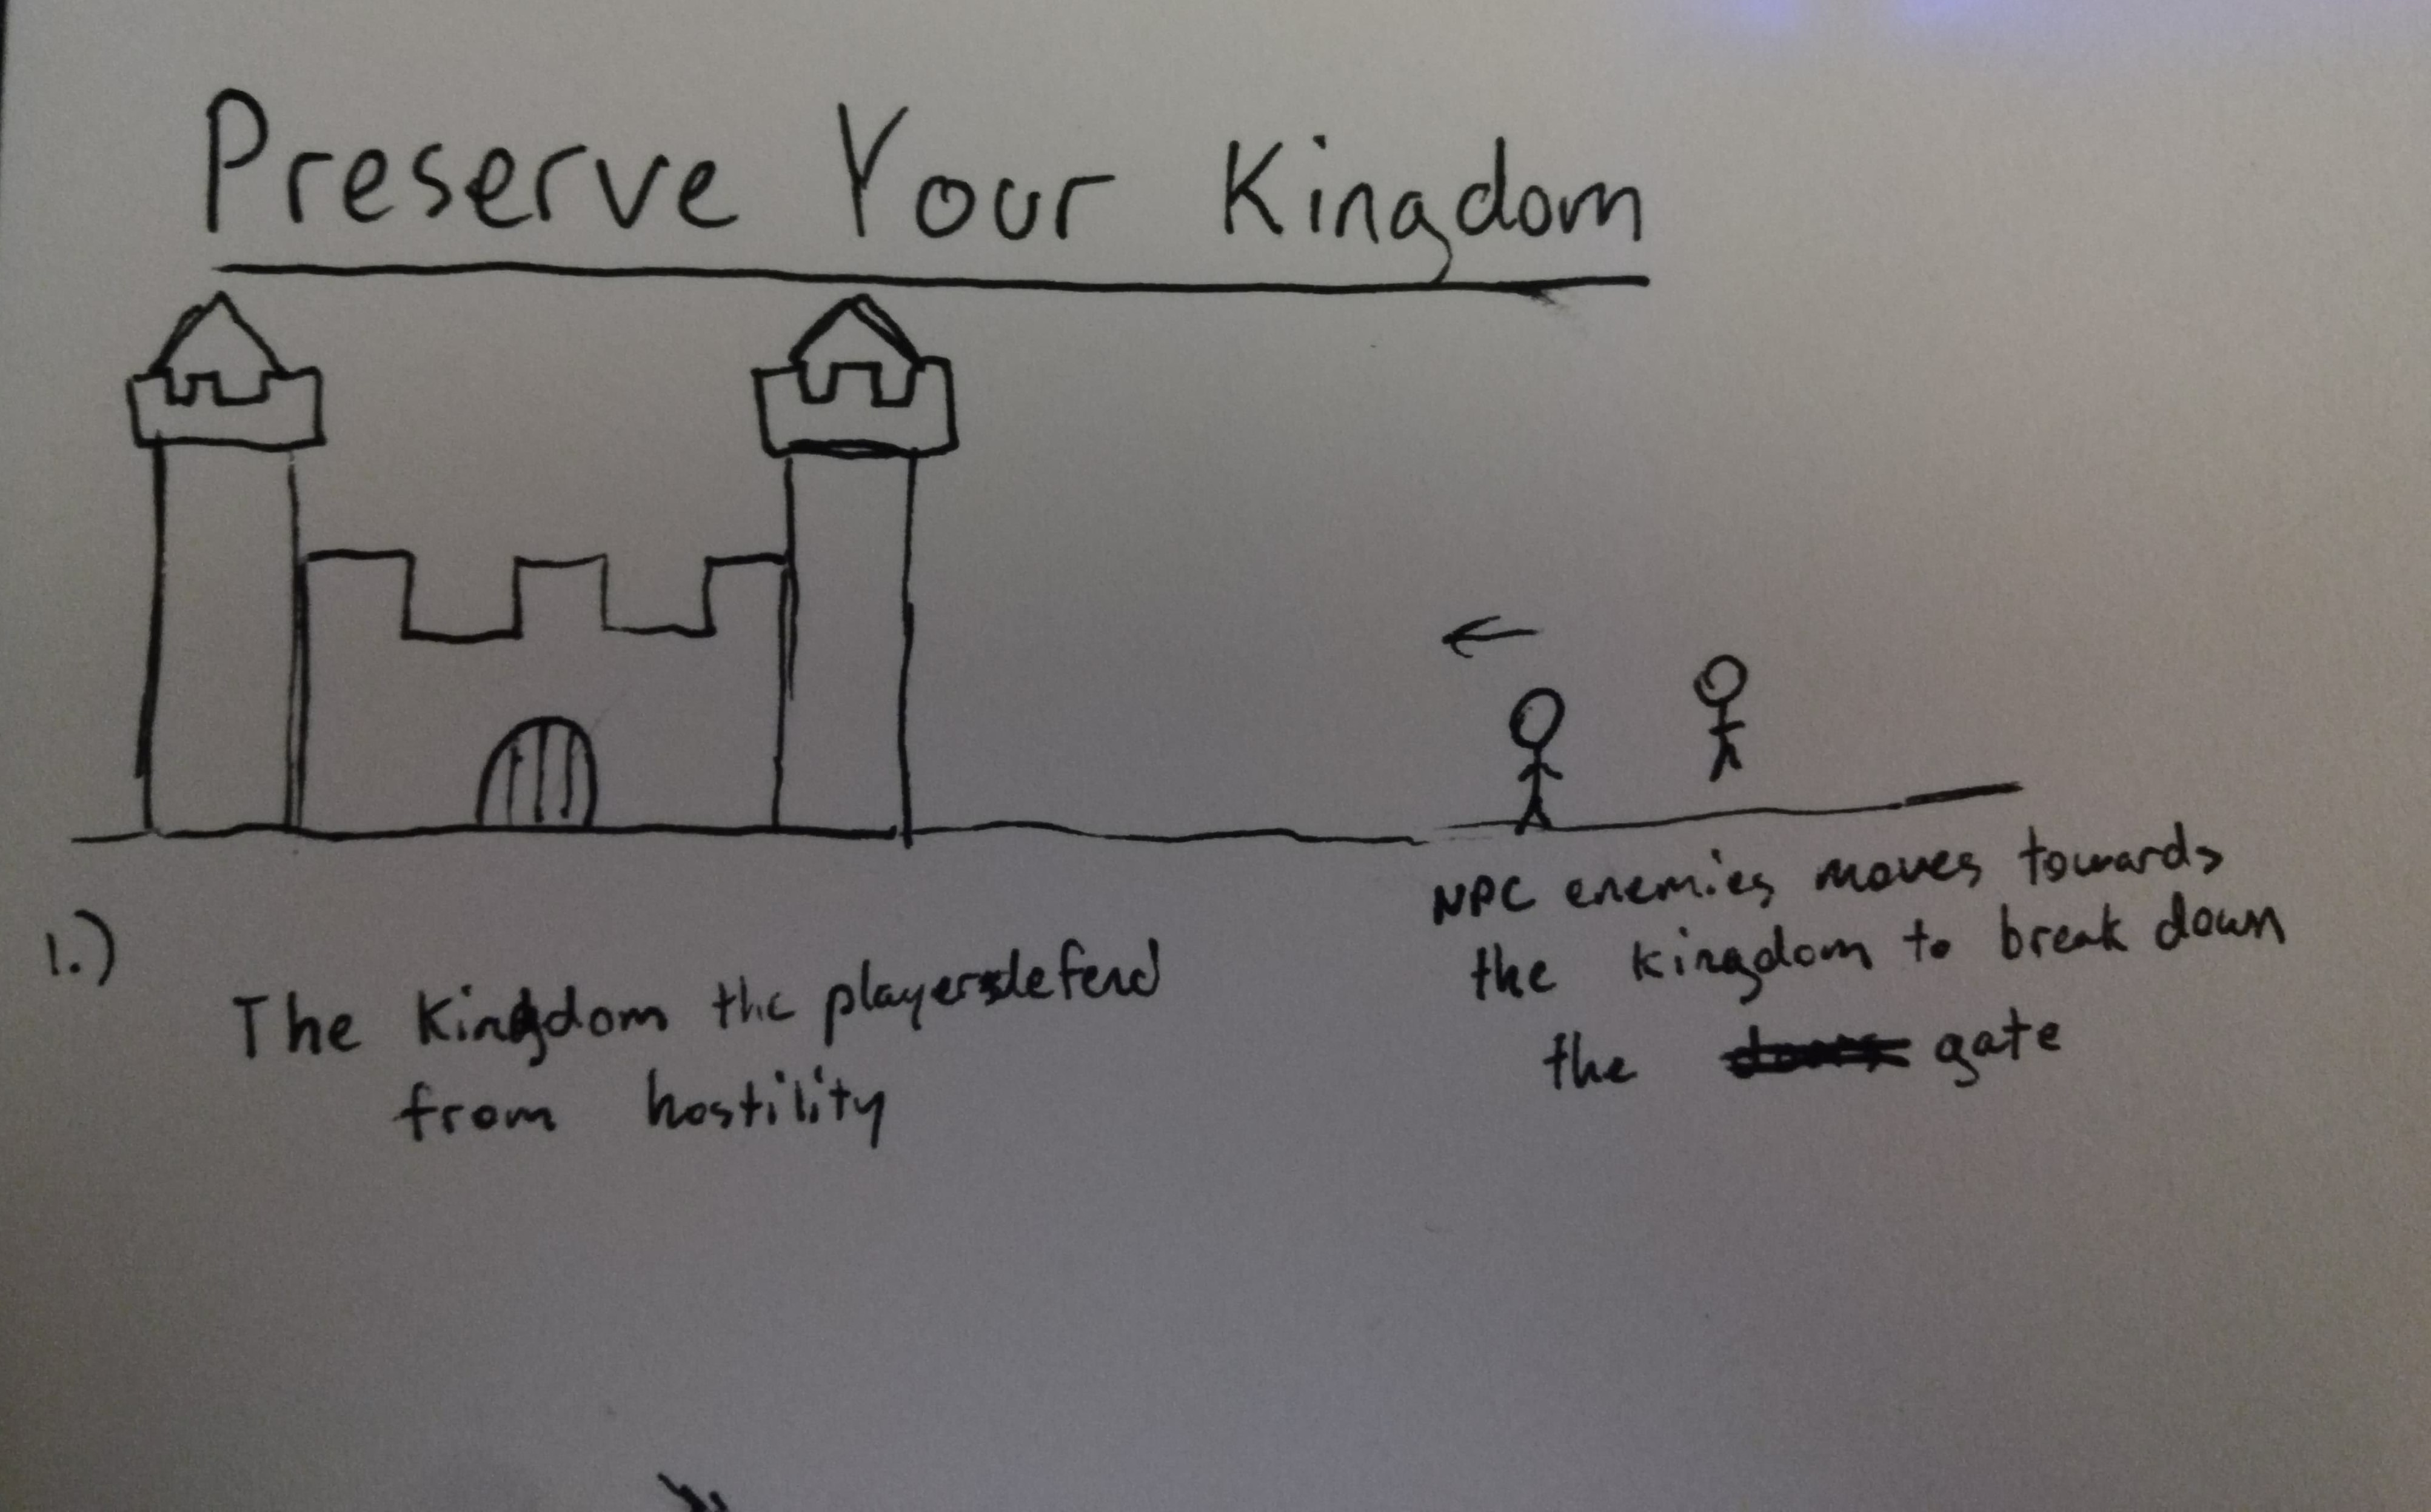 Preserve Your Kingdom
1.)
The Kingdom the players defend
from hostility
NPC enemies moves towards
the kingdom to break down
the gate